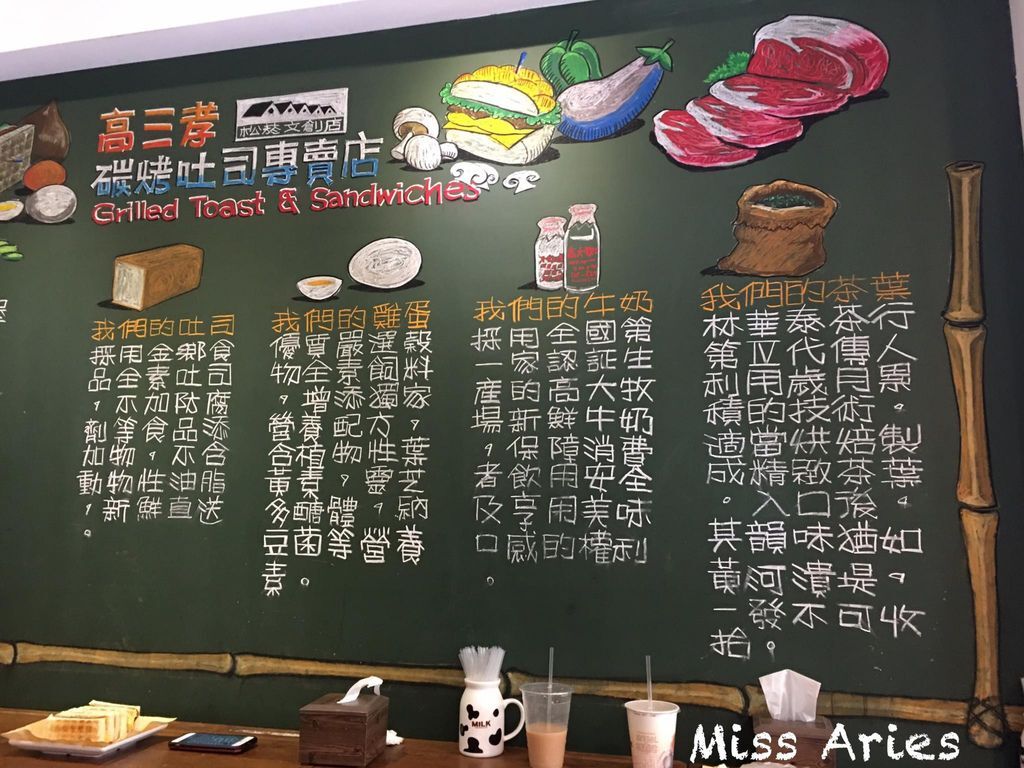 高三孝
松菸文創店
碳烤吐司專賣店
Grilled Toast & Sandwiches
我們的吐司
採用金鄉食
品,全素吐司
,不加防腐
劑等食品添
加物,不含
動物性油脂
。新鮮直送
我們的雞蛋
優質嚴選穀
物全素飼料
,增添獨家
營養配方,
含植物性葉
黃素,靈芝
多醣體,納
豆菌等營養
素。
我們的牛奶
採用全國第
一家認証生
產的高大牧
場新鮮牛奶
。保障消費
者飲用安全
及享用美味
口感的權利
。
我們的茶葉
林華泰茶行
第立代傳人
利用歲月累
積的技術,
適當烘焙製
成精緻茶葉
。入口後,
其韻味猶如
黃河潰堤,
一發不可收
拾。
MILK
Miss Aries